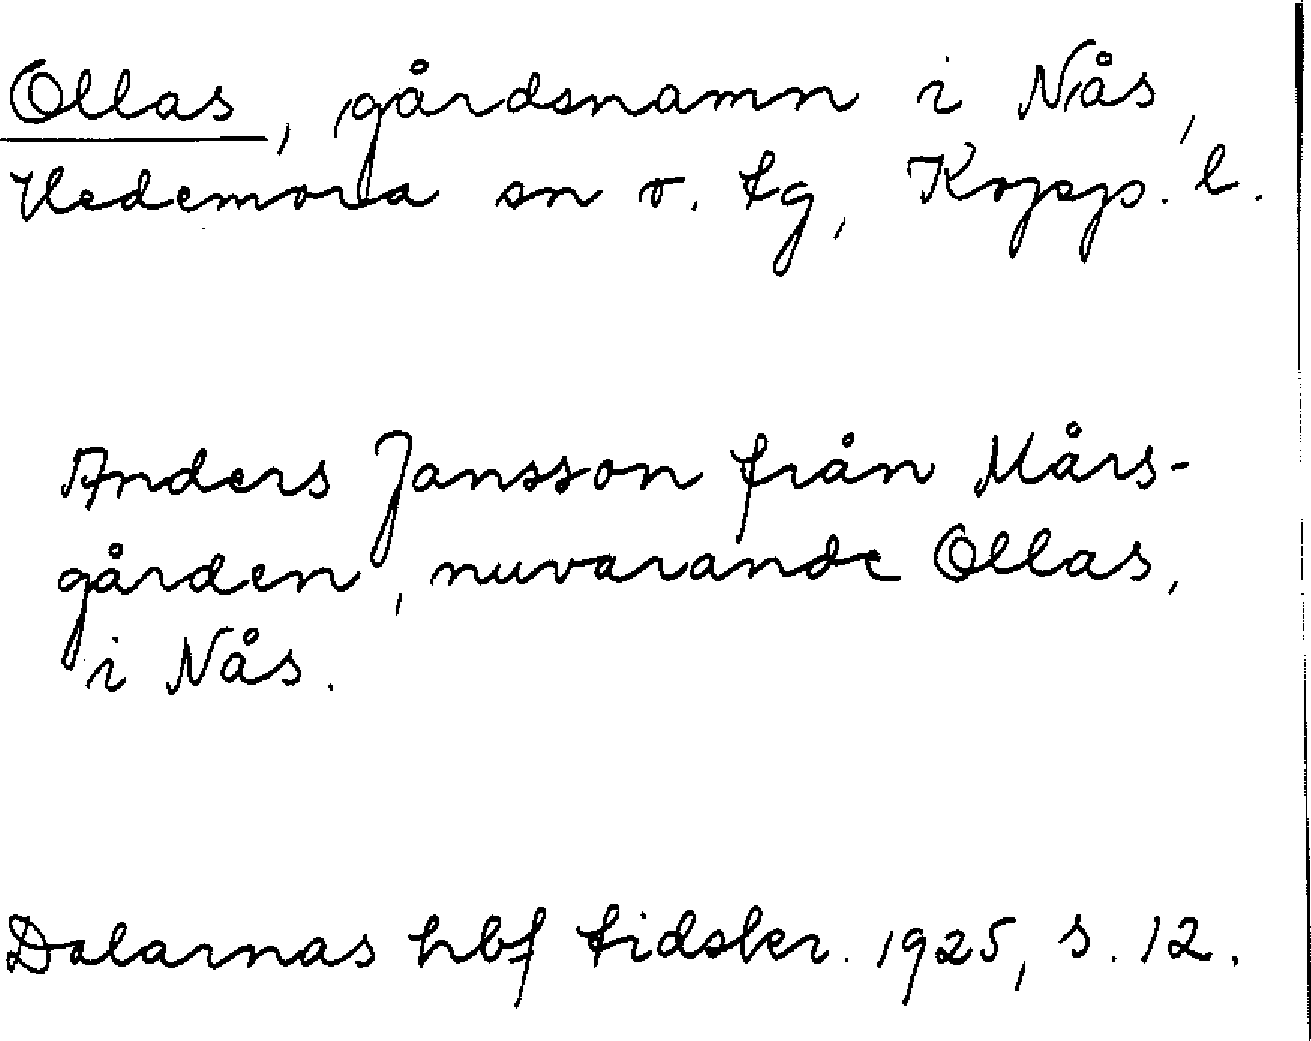 Ollas, gårdsnamn i Nås,
Hedemora sn o. tg, Kopp. l.
Anders Jansson från Mårs-
gården, nuvarande Ollas,
i Nås.
Dalarnas hbf tidskr. 1925, s. 12.